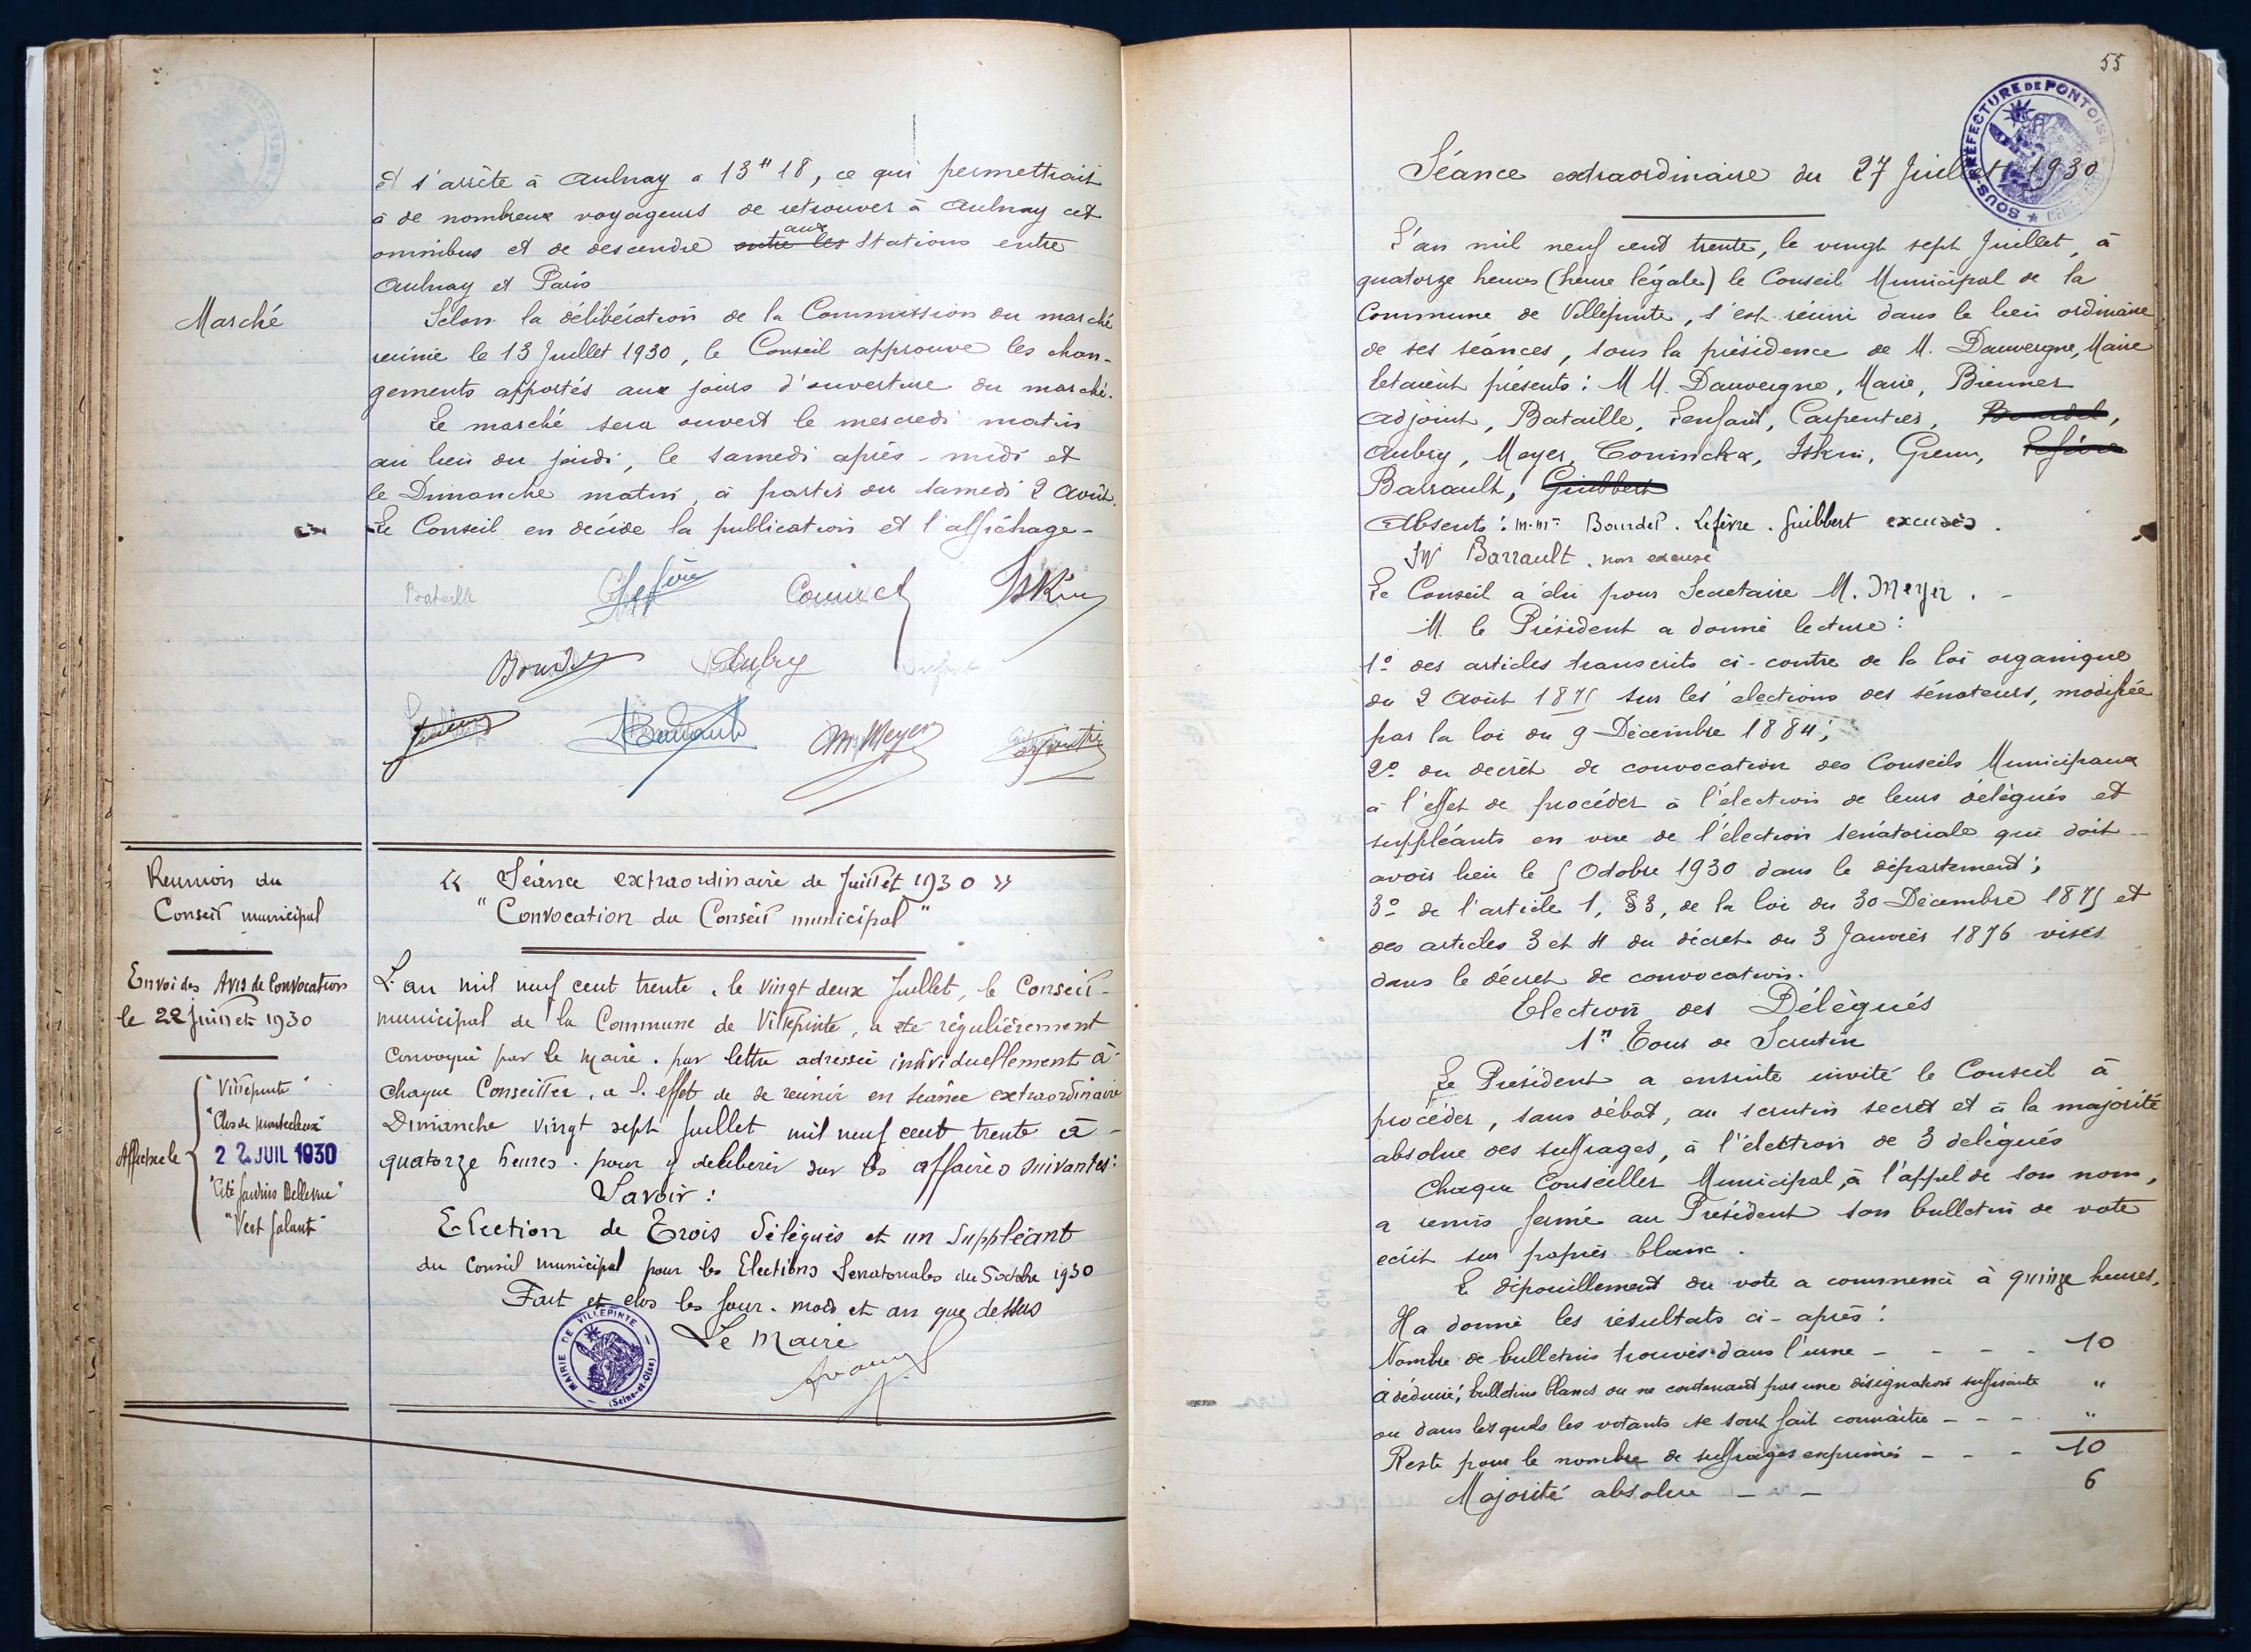 et s'arrête à Aulnay a 13h18, ce qui permettrait
à de nombreux voyageurs de retrouver à Aulnay cet
omnibus et de descendre entre les aux Stations entre
Aulnay et Paris
Marché
Selon la délibération de la Commission du marché
reunie le 13 Juillet 1930, le Conseil approuve les chan-
gements apportés aux jours d'ouverture du marché.
Le marché sera ouvert le mercredi matin
au lieu du jeudi, le samedi après-midi et
le Dimanche matin, à partir du samedi 2 Août.
Le Conseil en décide la publication et l'affichage-
Bataille Lefèvre Couinck Iskin
Bourdel Aubry
Barrault M Meyer Carpentier
Reunion du
Conseil municipal
Envoi des Avis de Convocation
le 22 Juillet 1930
Affiché le
"Villepinte"
"Clos de Montceleux"
22 JUIL 1930
"Cité Jardins Bellevue"
"Vert Galant"
« Séance extraordinaire de Juillet 1930 »
"Convocation du Conseil municipal"
L'an mil neuf cent trente. le vingt deux Juillet, le Conseil-
municipal de la Commune de Villepinte, a été régulièrement
convoqué par le Maire. par lettre adressée individuellement à-
chaque Conseiller, a l'effet de se réunir en séance extraordinaire
Dimanche vingt sept Juillet mil neuf cent trente à-
quatorze heures. pour y deliberer sur les affaires suivantes:
Savoir:
Election de Trois Délégués et un Suppléant
du Conseil municipal pour les Elections Senatoriales du 5 octobre 1930
Fait et clos les Jour. mois et an que dessus
Le Maire
MAIRIE DE VILLEPINTE
(Seine-et-Oise)
55
SOUS-PRÉFECTURE DE PONTOISE
Séance extraordinaire du 27 Juillet 1930
L'an mil neuf cent trente, le vingt sept Juillet, à
quatorze heures (heure légale) le Conseil Municipal de la
Commune de Villepinte, s'est réuni dans le lieu ordinaire
de ses séances, sous la présidence de M. Dauvergne, Maire
Etaient présents: M M. Dauvergne, Maire, Bienner
adjoint, Bataille, Lenfant, Carpentier, Bourdel,
Aubry, Meyer, Couninckx, Iskin, Grenn, Lefèvre
Barrault, Guibbert
Absents: M.Mrs Bourdel. Lefèvre. Guibbert excusés.
Mr Barrault. non excusé
Le Conseil a élu pour Secretaire M. Meyer. -
M. le Président a donné lecture:
1º des articles transcrits ci-contre de la loi organique
du 2 Août 1875 sur les élections des sénateurs, modifiée
par la loi du 9 Décembre 1884;
2º du decrêt de convocation des Conseils Municipaux
à l'effet de procéder à l'élection de leurs délégués et
suppléants en vue de l'élection senatoriale qui doit
avoir lieu le 5 Octobre 1930 dans le département;
3º de l'article 1, §3, de la loi du 30 Décembre 1875 et
des articles 3 et 4 du décret du 3 Janvier 1876 visés
dans le décret de convocation.
Election des Délégués
1er Tour de Scrutin
Le Président a ensuite invité le Conseil à
procéder, sans débat, au scrutin secret et à la majorité
absolue des suffrages, à l'élection de 3 délégués
Chaque Conseiller Municipal, à l'appel de son nom,
a remis fermé au Président son bulletin de vote
ecrit sur papier blanc.
Le dépouillement du vote a commencé à quinze heures.
Il a donné les résultats ci-après:
Nombre de bulletins trouvés dans l'urne - - - - 10
A déduire; bulletins blancs ou ne contenant pas une désignation suffisante "
ou dans lesquels les votants se sont fait connaître - - - "
Reste pour le nombre de suffrages exprimés - - - 10
Majorité absolue - - 6